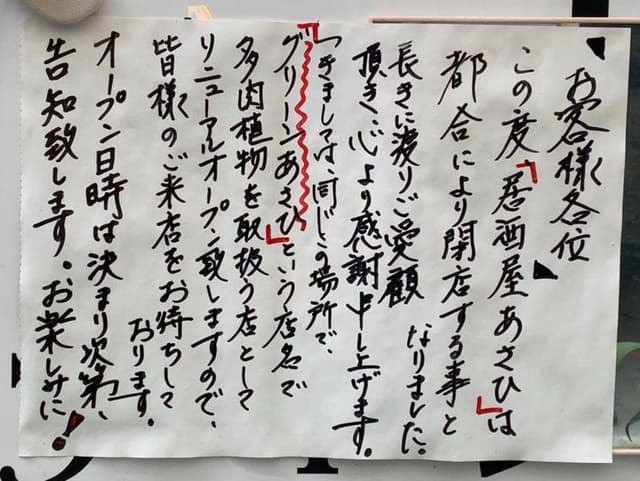 お客様各位
この度、「居酒屋あさひ」は
都合により閉店する事と
なりました。
長きに渡りご愛顧
頂き、心より感謝申し上げます。
つきましては、同じこの場所で、
「グリーンあさひ」という店名で
多肉植物を取扱う店として
リニューアルオープン致しますので、
皆様のご来店をお待ちして
おります。
オープン日時は決まり次第、
告知致します。お楽しみに!